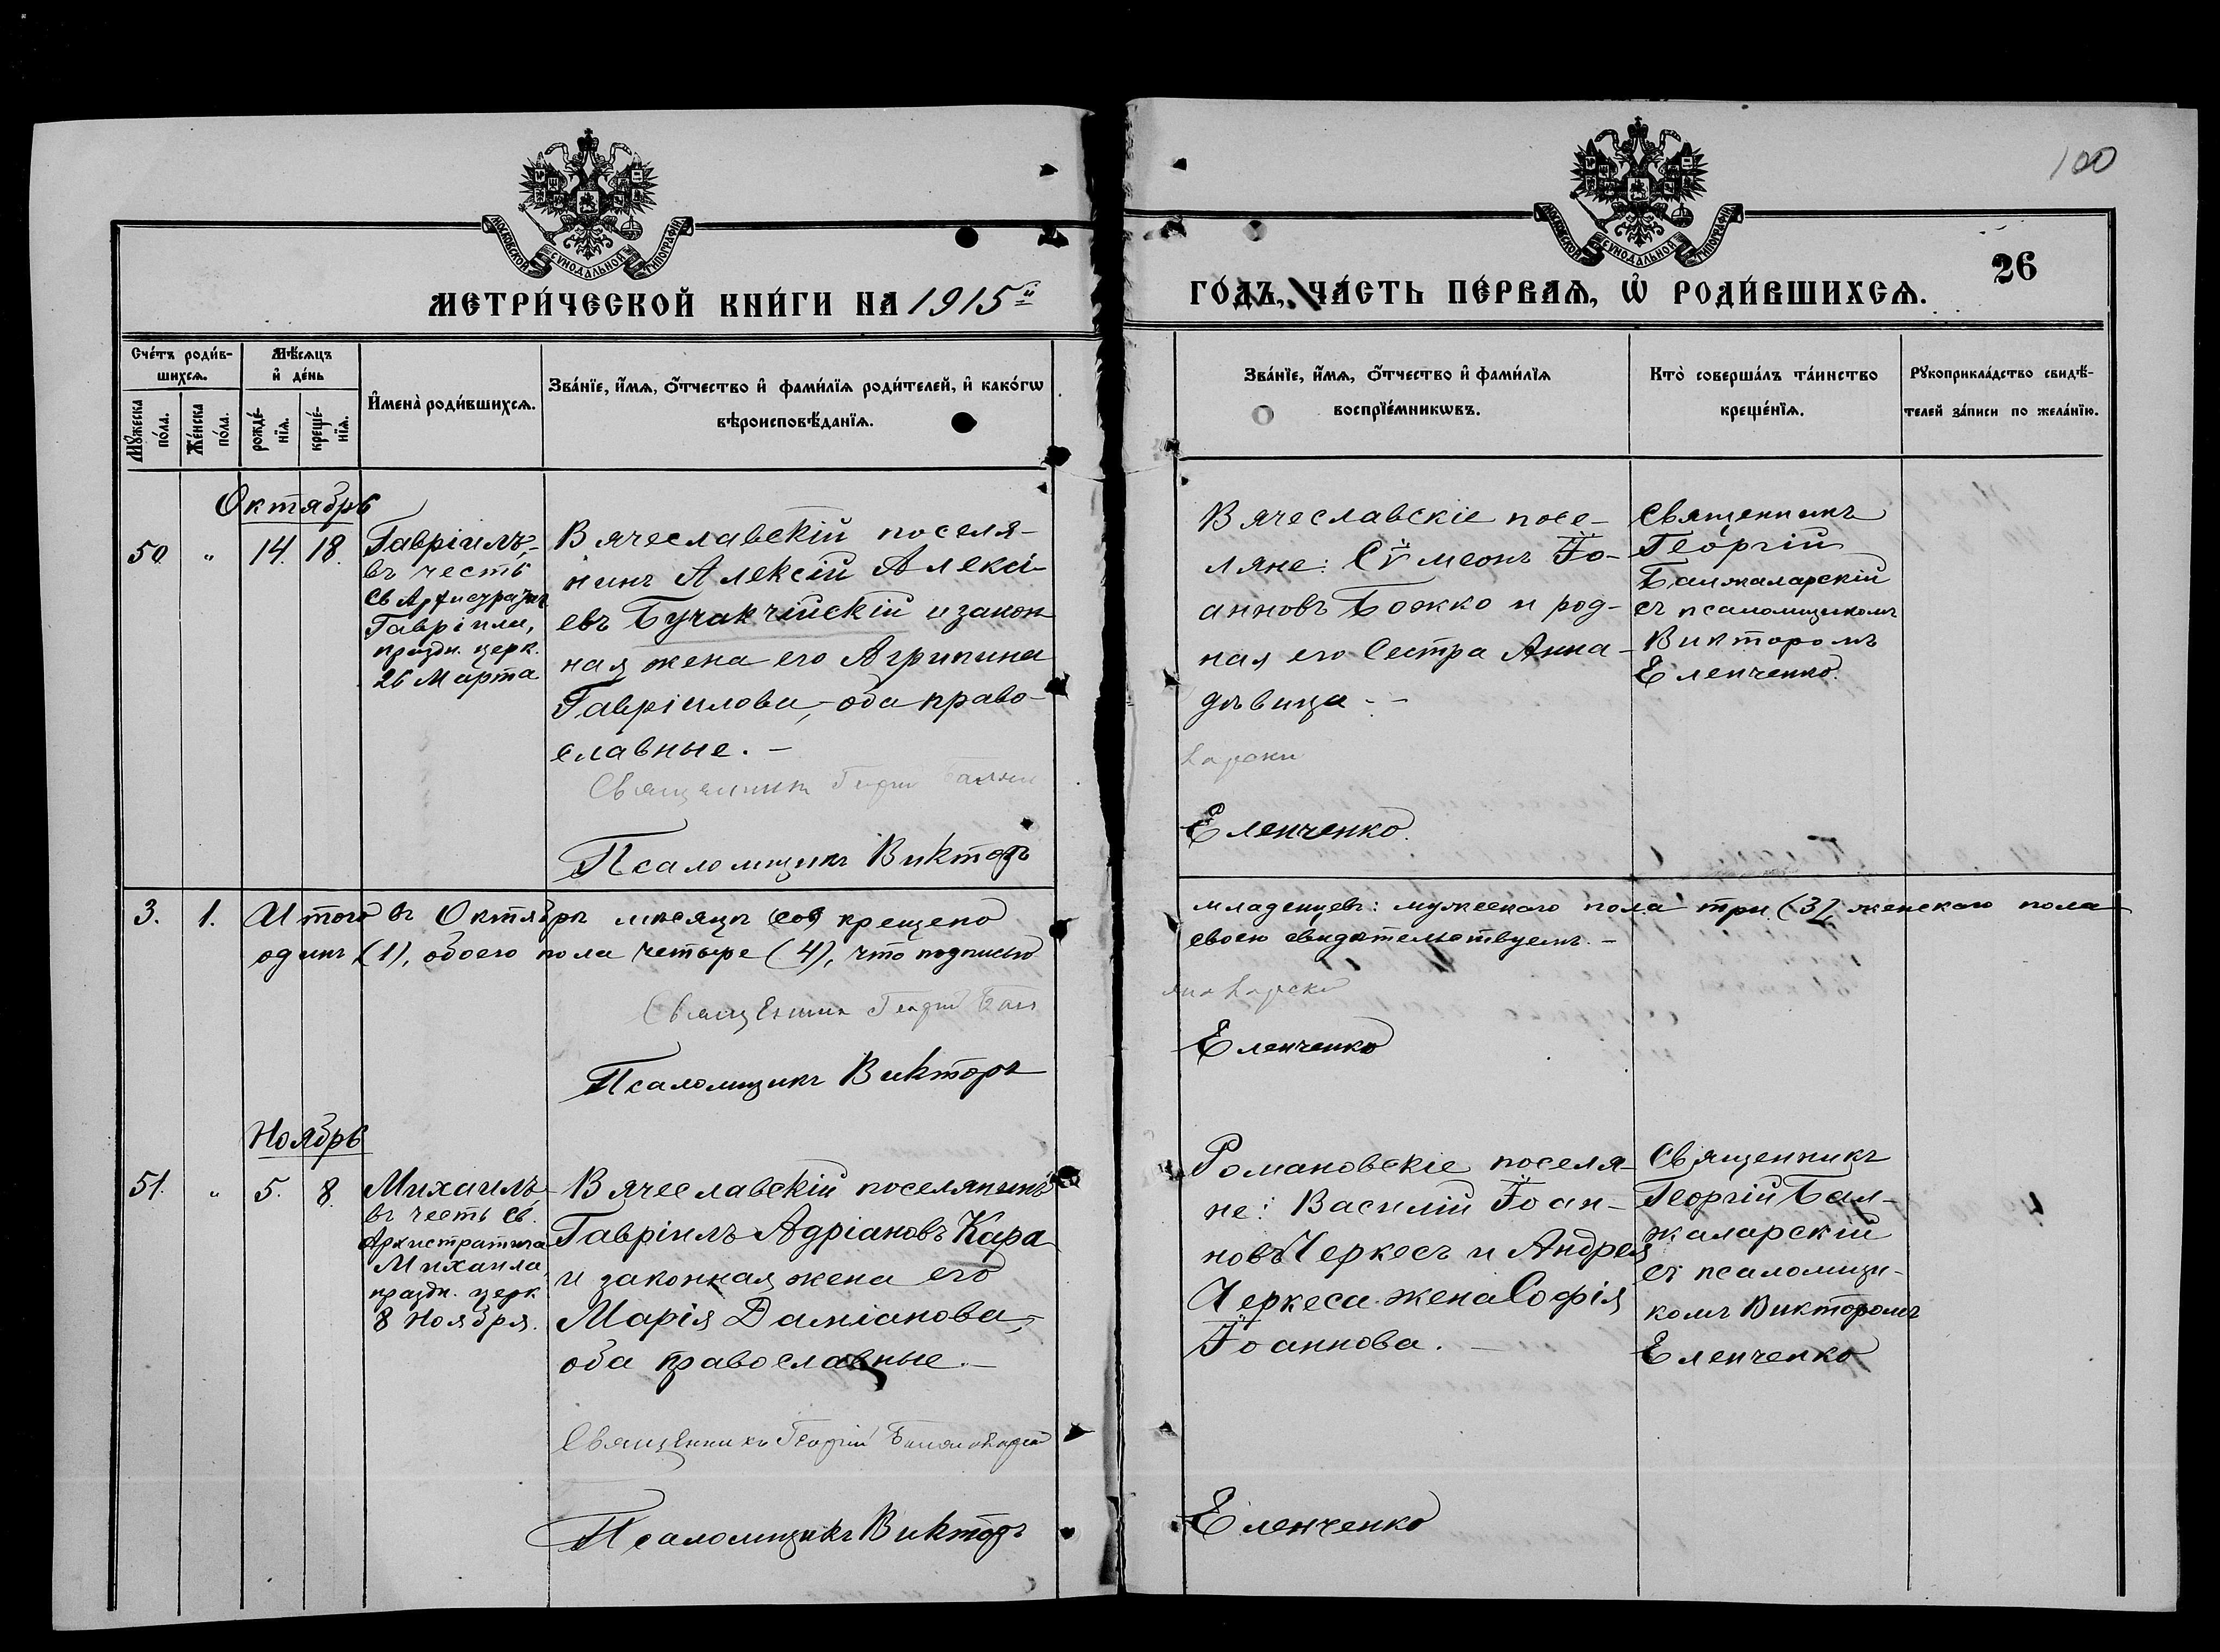 100
26
МОСКОВСКОЙ СѴНОДАЛЬНОЙ ТИПОГРАФІИ
МОСКОВСКОЙ СѴНОДАЛЬНОЙ ТИПОГРАФІИ
МЕТРИ́ЧЕСКОЙ КНИ́ГИ НА 1915й
ГО́ДЪ, ЧА́СТЬ ПЕ́РВАѦ, Ѡ҆ РОДИ́ВШИХСѦ.
Сче́тъ роди́в-
шихсѧ.
Мꙋ́жеска
по́ла.
Же́нска
по́ла.
Мѣ́сѧцъ
и҆ де́нь
рожде́-
нїѧ.
креще́-
нїѧ.
И҆мена̀ роди́вшихсѧ.
Зва́нїе, и҆́мѧ, ѻ҆́тчество и҆ фами́лїѧ роди́телей, и҆ како́гѡ
вѣроисповѣ́данїѧ.
Зва́нїе, и҆́мѧ, ѻ҆́тчество и҆ фами́лїѧ
воспрїе́мникѡвъ.
Кто̀ соверша́лъ та́инство
креще́нїѧ.
Рꙋкоприкла́дство свидѣ́-
телей за́писи по жела́нїю.
Октябрь
50 " 14. 18.
Гавріилъ,-
въ честь
Св Архистратига
Гавріила,
праздн. церк.
26 Марта
Вячеславскій поселя-
нинъ Алексій Алексі-
евъ Бучакчійскій и закон
ная жена его Агрипина
Гавріилова,- оба право-
славные. -
Священникъ Георгій Балжа
Псаломщикъ Викторъ
Вячеславскіе посе-
ляне: Сѵмеонъ Іо-
анновъ Божко и род-
ная его Сестра Анна-
дѣвица - -
ларскій
Еленченко.
Священникъ
Георгій
Балжаларскій
съ псаломщикомъ
Викторомъ
Еленченко.
3. 1. Итого въ Октябрѣ мѣсяцѣ крещено
одинъ (1), обоего пола четыре (4), что подписью
младенцевъ: мужескаго пола три (3), женскаго пола
своею свидѣтельствуемъ. -
Священникъ Георгій Бал
жаларскій
Псаломщикъ Викторъ
Еленченко
Ноябрь
51. " 5. 8.
Михаилъ,
въ честь Св.
Архистратига
Михаила,
праздн. церк
8 Ноября.
Вячеславскій поселянинъ
Гавріилъ Адріановъ Кара
и законная жена его
Марія Даміанова,-
оба православные. -
Священникъ Георгій Балжаларскій
Псаломщикъ Викторъ
Романовскіе поселя-
не: Василій Іоан-
новъ Черкесъ и Андрея
Черкеса жена Софія
Іоаннова. -
Еленченко
Священникъ
Георгій Бал-
жаларскій
съ псаломщи-
комъ Викторомъ
Еленченко